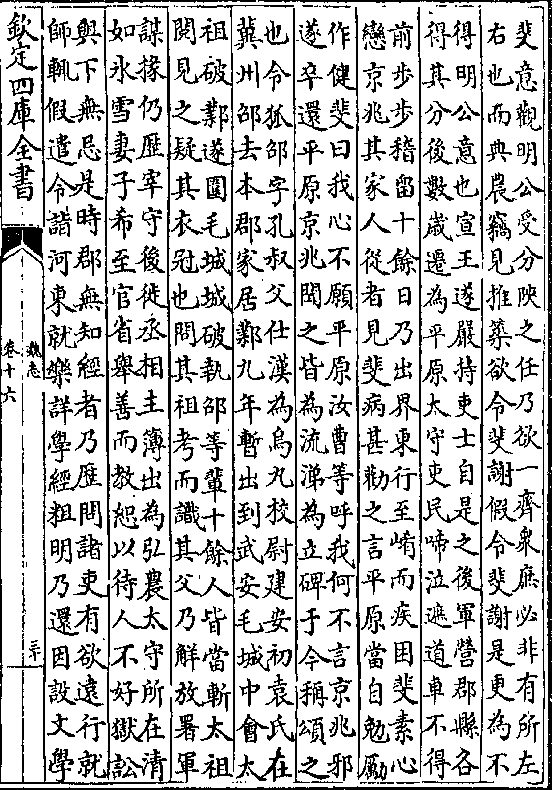 斐意觀明公受分陝之任乃欲一齊衆庶必非有所左
右也而典農竊見推築欲令斐謝假令斐謝是更為不
得明公意也宣王遂嚴持吏士自是之後軍營郡縣各
得其分後數歲遷為平原太守吏民啼泣遮道車不得
前步步稽留十餘日乃出界東行至崤而疾困斐素心
戀京兆其家人從者見斐病甚勸之言平原當自勉勵
作健斐曰我心不願平原汝曹等呼我何不言京兆邪
遂卒還平原京兆聞之皆為流涕為立碑于今稱頌之
也令狐邵字孔叔父仕漢為烏丸校尉建安初袁氏在
冀州邵去本郡家居鄴九年暫出到武安毛城中會太
祖破鄴遂圍毛城城破執邵等輩十餘人皆當斬太祖
閱見之疑其衣冠也問其祖考而識其父乃解放署軍
謀掾仍歷宰守後徙丞相主簿出為弘農太守所在清
如氷雪妻子希至官省舉善而教恕以待人不好獄訟
與下無忌是時郡無知經者乃歷問諸吏有欲遠行就
師輒假遣令詣河東就樂詳學經粗明乃還因設文學
欽定四庫全書
魏志
卷十六
三十